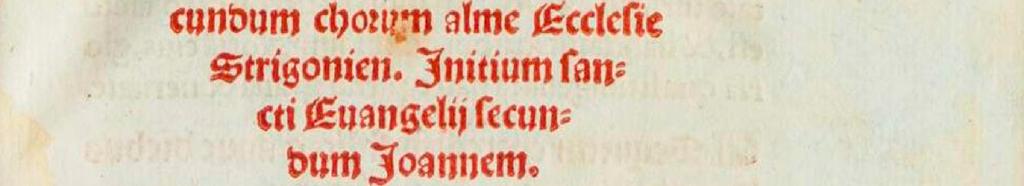 cundum chorum alme Ecclesie
Strigonien. Initium san-
cti Euangelij secun-
dum Joannem.